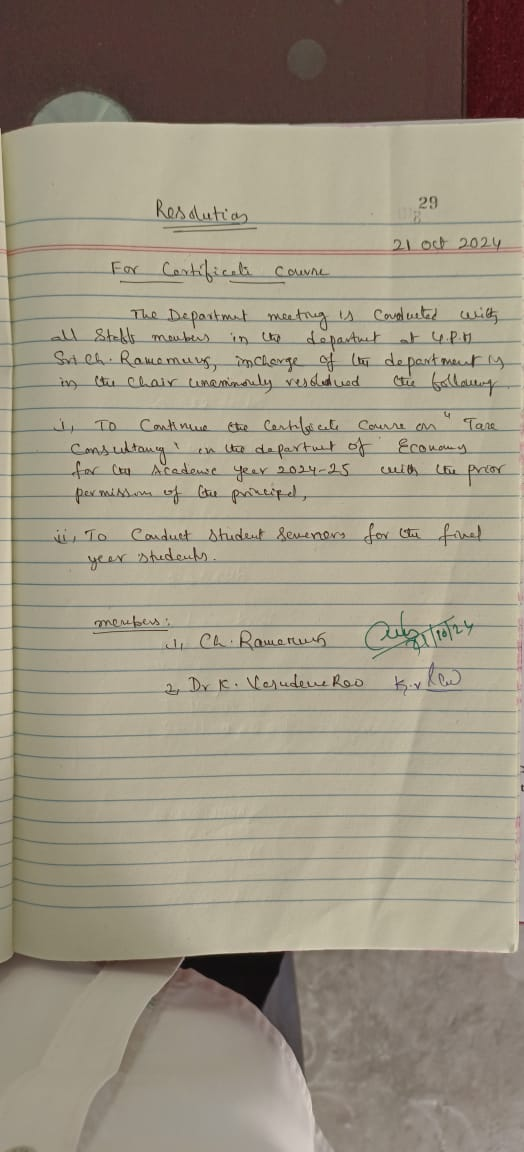 Resolution
29
21 oct 2024
For Certificate Course
The Department meeting is Conducted with
all Staff members in the department at 4.P.M
Sri Ch. Ramamurty, incharge of the department is
in the Chair unanimously resolved the following.
i, To Continue the Certificate Course on "Tax
Consultancy" in the department of Economy
for the Academic year 2024-25 with the prior
permission of the principal,
ii, To Conduct student Seminars for the final
year students.
members:
1, Ch. Ramamurty
21/10/24
2, Dr K. Vasudeva Rao K.v Rao